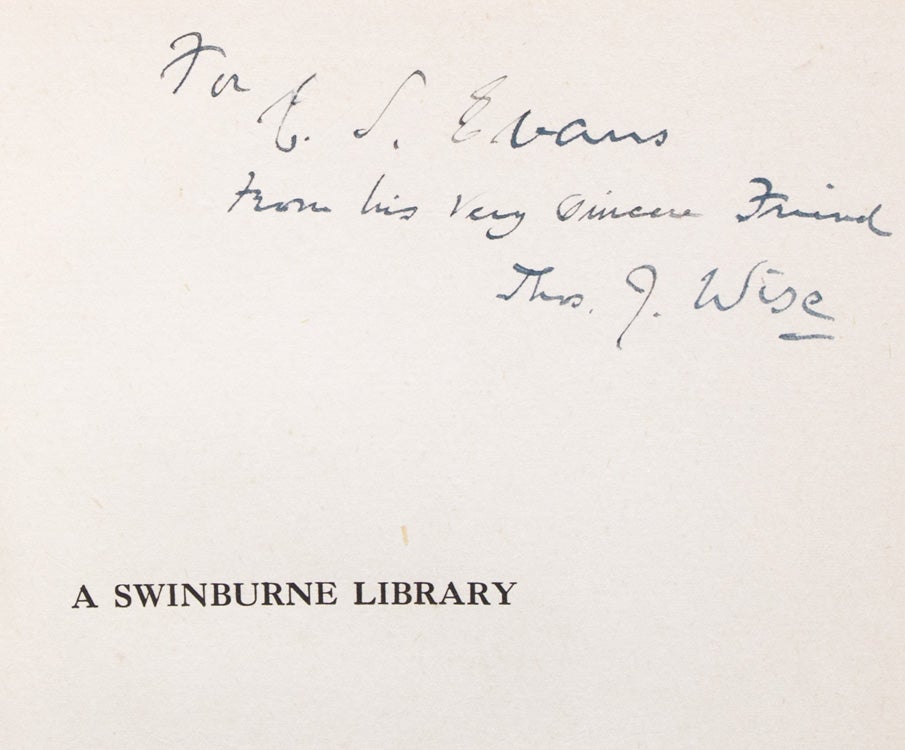 For
C. S. Evans
From his very sincere Friend
Thos. J. Wise
A SWINBURNE LIBRARY